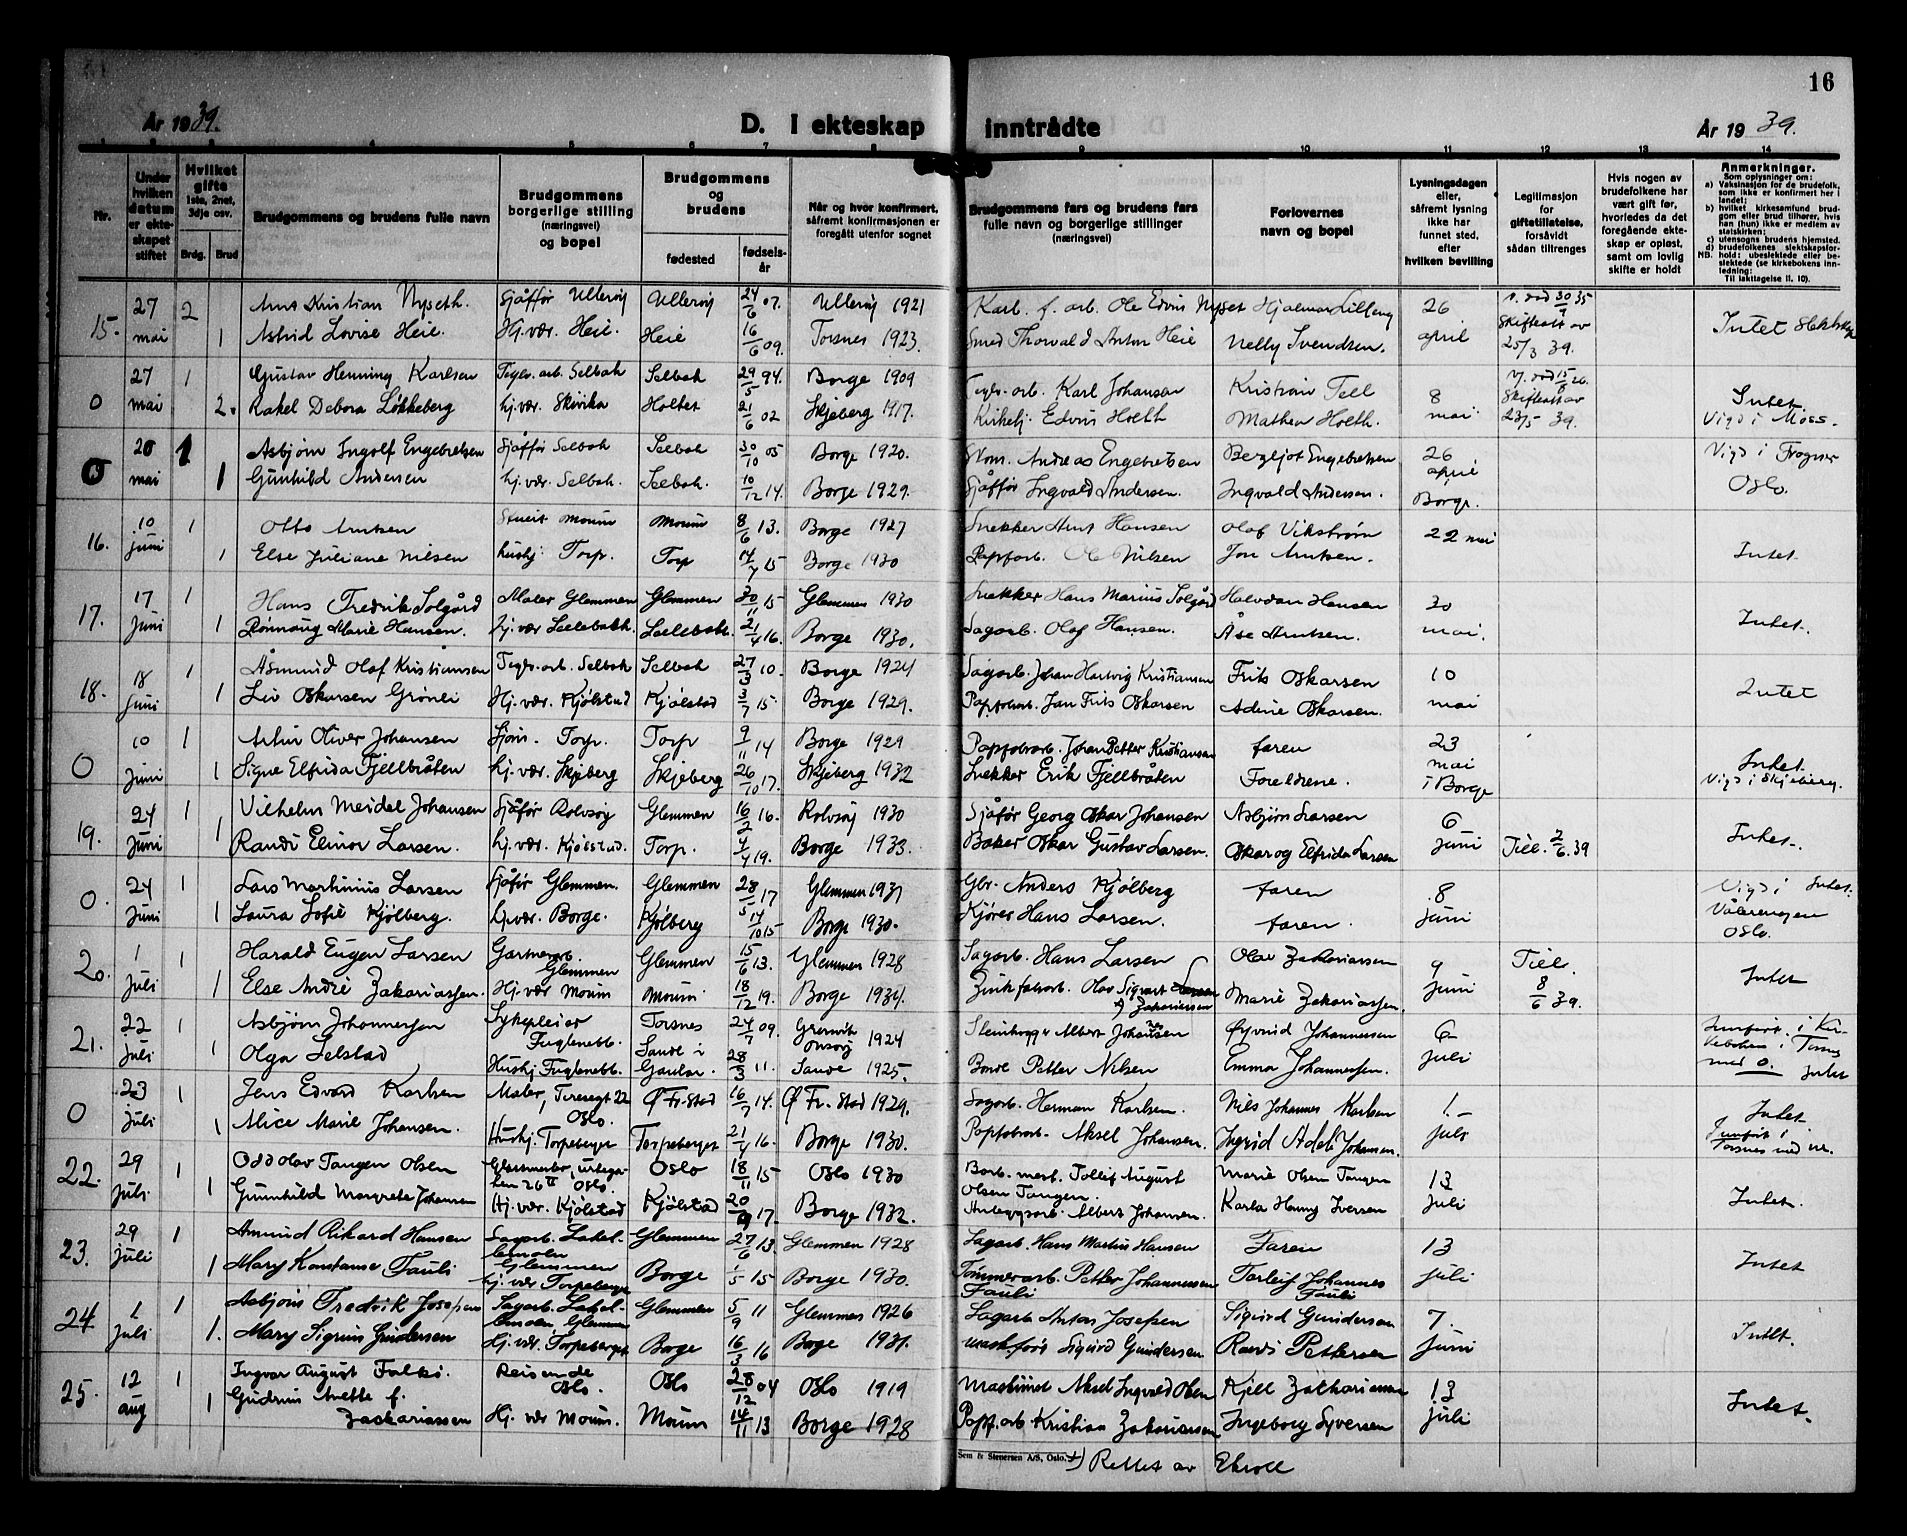 16
År 1939.
D. I ekteskap inntrådte
År 1939.
4 6 7 8 9 10 11 12 13 14
Nr.
Under hvilken datum er ekteskapet stiftet
Hvilket gifte 1ste, 2net, 3dje osv.
Brdg. Brud
Brudgommens og brudens fulle navn
Brudgommens borgerlige stilling (næringsvei) og bopel
Brudgommens og brudens
fødested
fødselsår
Når og hvor konfirmert, såfremt konfirmasjonen er foregått utenfor sognet
Brudgommens fars og brudens fars fulle navn og borgerlige stillinger (næringsvei)
Forlovernes navn og bopel
Lysningsdagen eller, såfremt lysning ikke har funnet sted, efter hvilken bevilling
Legitimasjon for giftetillatelse, forsåvidt sådan tiltrenges
Hvis nogen av brudefolkene har vært gift før, hvorledes da det foregående ekteskap er opløst, samt om lovlig skifte er holdt
Anmerkninger.
Som oplysninger om:
a) Vaksinasjon for de brudefolk, som ikke er konfirmert her i landet;
b) hvilket kirkesamfund brudgom eller brud tilhører, hvis han (hun) ikke er medlem av statskirken;
c) utensogns brudens hjemsted.
d) brudefolkenes slektskapsforhold: ubeslektede eller beslektede (se kirkebokens innledning:
NB.
Til iakttagelse II. 10).
15. 27 2 Arnt Kristian Nyseth. Sjåffør Ullerøy Ullerøy 24/6 07. Ullerøy 1921 Karl f. arb. Ole Edvin Nyset Hjalmar Lilleng 26 30/9 35 Intet
mai 1 Astrid Lovise Heie. Hj. vær. Heie. Heie 16/6 09. Torsnes 1923. Smed Thorvald Anton Heie Nelly Svendsen. april Skifteatt av 25/3 39.
27 1 Gustav Henning Karlsen Teglv. arb. Selbak Selbak 29/5 94. Borge 1909 Teglv. arb. Karl Johansen Kristian Tell 8 15/8 26. Intet.
0 mai 2. Rakel Debora Løkkeberg hj. vær. Skivika Holtet 21/6 02 Skjeberg 1917. Kirketj. Edvin Holth Mathea Holth. mai Skifteatt av 23/5 39. Vigd i Moss.
20 1 Asbjørn Ingolf Engebretsen Sjåffør Selbak Selbak 30/10 05 Borge 1920. Andreas Engebretsen Bergljot Engebretsen 26 Vigd i Frogner
0 mai 1 Gunhild Andersen hj. vær. Selbak. Selbak. 10/12 14. Borge 1929. Sjåffør Ingvald Andersen. Ingvald Andersen. april Borge. Oslo.
16. 10 1 Otto Arntsen Moum Moum 8/6 13. Borge 1927 Snekker Arnt Hansen Olaf Vikstrøm 22 mai
juni 1 Else Juliane Nilsen hushj. Torp. Torp 14/7 15 Borge 1930 Papfarb. Ole Nilsen Jon Arntsen. Intet.
17. 17 1 Hans Fredrik Solgård Maler Glemmen Glemmen 30/11 15 Glemmen 1930 Snekker Hans Marius Solgård Halvdan Hansen 20 Intet.
juni 1 Rønnaug Marie Hansen. hj. vær Selebakk. Selebakk. 21/4 16. Borge 1930. Sagarb. Olaf Hansen. Åse Arntsen. mai.
18. 18 1 Åsmund Olaf Kristiansen Teglv. arb. Selbak Selbak 27/3 10. Borge 1924 Sagarb. Johan Hartvig Kristiansen Frits Oskarsen 10 Intet
juni 1 Liv Oskarsen Grønli Hj. vær. Kjølstad Kjølstad 3/7 15. Borge 1929. Papfabrarb. Jan Frits Oskarsen Adine Oskarsen. mai
10 1 Artur Oliver Johansen Sjøm. Torp. Torp 9/11 14 Borge 1929 Papfabrarb. Johan Petter Kristiansen faren 23 Intet.
0 juni 1 Signe Elfrida Fjellbråten hj. vær. Skjeberg Skjeberg 26/10 17. Skjeberg 1932 Snekker Erik Fjellbråten Foreldrene. mai i Borge Vigd i Skjeberg.
19. 24 1 Vilhelm Meidel Johansen Sjåfør Rolvsøy Glemmen 16/2 16. Rolvsøy 1930 Sjåfør Georg Oskar Johansen Asbjørn Larsen 6
juni 1 Randi Elinor Larsen. hj. vær. Kjølstad. Torp. 4/4 19. Borge 1933. Baker Oskar Gustav Larsen. Oskar og Elfrida Larsen juni Till. 2/6. 39 Intet.
24 1 Lars Martinius Larsen Sjåfør Glemmen. Glemmen 28/5 17 Glemmen 1931 Gbr. Anders Kjølberg faren 8 Vigd i Intet.
0. juni 1 Laura Sofie Kjølberg. hj. vær. Borge. Kjølberg 14/10 15 Borge 1930. Kjører Hans Larsen. faren. juni Vålerengen Oslo.
20. 1 1 Harald Eugen Larsen Gartnerarb. Glemmen Glemmen 15/6 13. Glemmen 1928 Sagarb. Hans Larsen Olav Zakariassen 9 Till. Intet
juli 1 Else André Zakariassen. Hj. vær Moum Moum 18/12 19. Borge 1934. Zinkfabarb. Olav Sigvart Larsen +) Zakariassen Marie Zakariassen. juni 8/6 39.
21. 22 1 Asbjørn Johannessen Sykepleier Fuglenebb. Torsnes 24/7 09. Onsøy 1924 Steinhogger Albert Johannesen Øyvind Johannessen 6
juli 1 Olga Selstad Hushj. Fuglenebb. Sande i Gaular. 28/3 11. Sande 1925. Bonde Petter Nilsen Emma Johannessen. juli med 0. Intet
23 1 Jens Edvard Karlsen Maler, Teresegt 22 Oslo. Ø Fr. stad 16/7 14. Ø Fr. stad 1929. Sagarb. Herman Karlsen. Nils Johannes Karlsen 1. Intet.
0 juli 1 Alice Marie Johansen. Hushj. Torpeberget Torpeberget 21/4 16. Borge 1930. Papfabrarb. Aksel Johansen. Ingrid Adele Johansen. juli Innført i Torsnes med nr.
22. 29 1 Odd Olav Tangen Olsen Oslo. Oslo 18/11 15 Oslo 1930 Tollif August Olsen Tangen. Marie Olsen Tangen 13
juli 1 Gunhild Margrete Johansen Hj. vær. Kjølstad Kjølstad 20/9 17. Borge 1932. Anleggsarb. Albert Johansen. Karla Hanny Iversen juli Intet.
23. 29 1 Amund Rikard Hansen Sagarb. Glemmen Glemmen 27/6 13. Glemmen 1928 Sagarb. Hans Martin Hansen Faren 13 Intet
juli 1 Mary Konstanse Fauli hj. vær Torpeberget Borge 1/5 15 Borge 1930. Tømmerarb. Petter Johannessen Fauli Torleif Johannes Fauli juli
24. 1 1 Asbjørn Fredrik Josefsen Sagarb. Glemmen Glemmen 5/9 11 Glemmen 1926 Sagarb Anton Josefsen Sigurd Gundersen 7. Intet.
juli 1. Mary Sigrun Gundersen Hj. vær. Torpeberget Borge 16/3 16 Borge 1931. Maskfører Sigurd Gundersen Randi Pettersen juni
25. 12 1 Ingvar August Falkö. Reisende Oslo. Oslo 28/12 04 Oslo 1919 Maskinist Aksel Ingvald Olsen Kjell Zachariassen 13 Intet.
aug 1 Gudrun Anette f. Zackariassen Hj. vær Moum. Moum 14/11 13 Borge 1928 Papp. arb Kristian Zakariassen Ingeborg Syversen juli
Sem & Stenersen A/S, Oslo. +) Rettet av Ekroll